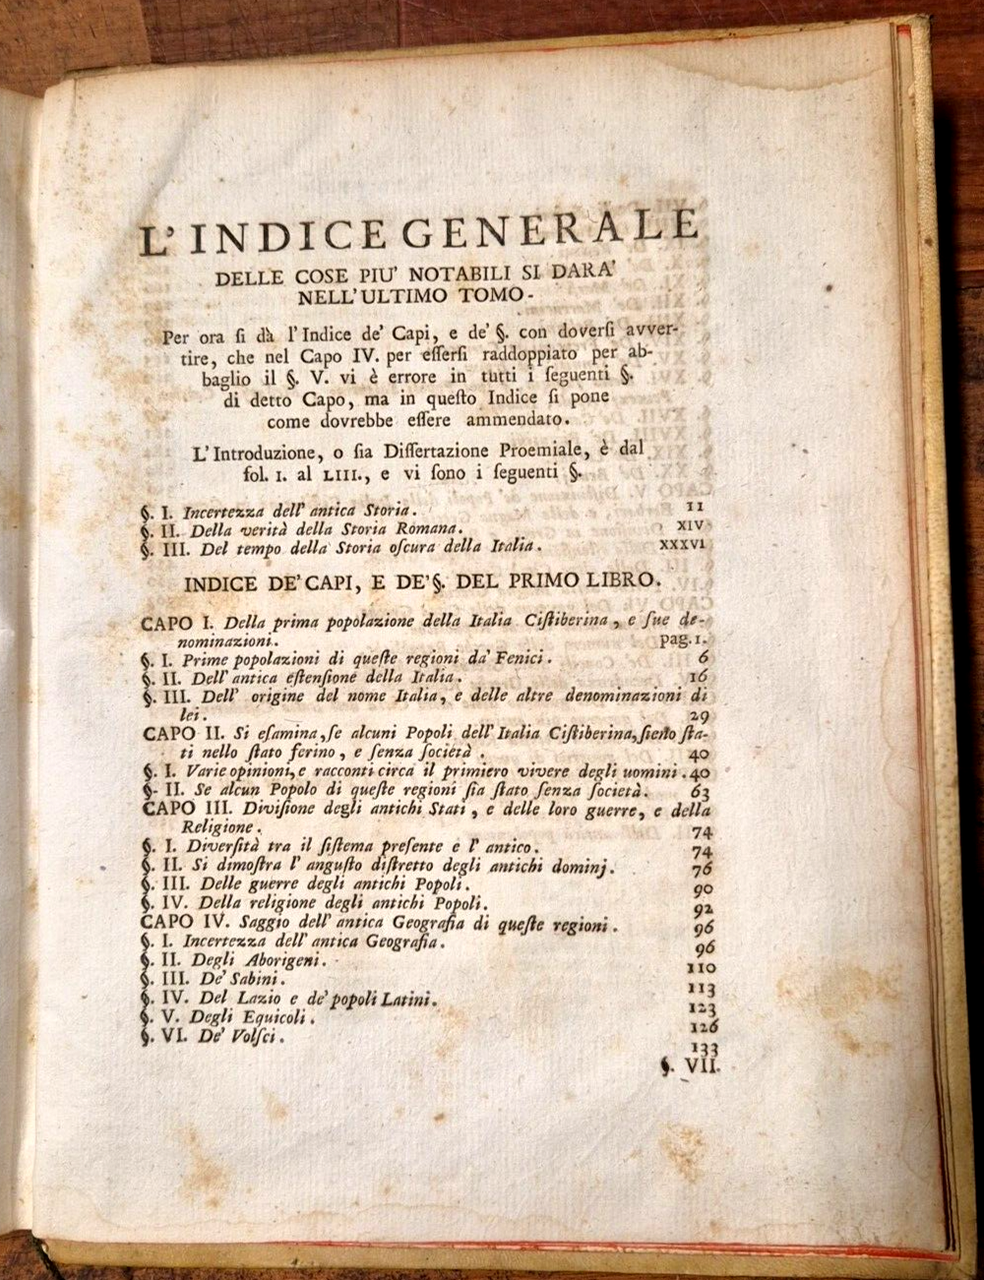 L' INDICE GENERALE
DELLE COSE PIU' NOTABILI SI DARA'
NELL'ULTIMO TOMO-
Per ora ſi dà l'Indice de' Capi, e de' §. con doverſi avver-
tire, che nel Capo IV. per eſſerſi raddoppiato per ab-
baglio il §. V. vi è errore in tutti i ſeguenti §.
di detto Capo, ma in queſto Indice ſi pone
come dovrebbe eſſere ammendato.
L'Introduzione, o ſia Diſſertazione Proemiale, è dal
fol. I. al LIII., e vi ſono i ſeguenti §.
§. I. Incertezza dell' antica Storia. II
§. II. Della verità della Storia Romana. XIV
§. III. Del tempo della Storia oſcura della Italia. XXXVI
INDICE DE' CAPI, E DE'§. DEL PRIMO LIBRO.
CAPO I. Della prima popolazione della Italia Ciſtiberina, e ſue de-
nominazioni. pag. 1.
§. I. Prime popolazioni di queſte regioni da' Fenici. 6
§. II. Dell' antica eſtenſione della Italia. 16
§. III. Dell' origine del nome Italia, e delle altre denominazioni di
lei. 29
CAPO II. Si eſamina, ſe alcuni Popoli dell' Italia Ciſtiberina, ſieno ſta-
ti nello ſtato ferino, e ſenza ſocietà. 40
§. I. Varie opinioni, e racconti circa il primiero vivere degli uomini. 40
§- II. Se alcun Popolo di queſte regioni ſia ſtato ſenza ſocietà. 63
CAPO III. Diviſione degli antichi Stati, e delle loro guerre, e della
Religione. 74
§. I. Diverſità tra il ſiſtema preſente e l' antico. 74
§. II. Si dimoſtra l' anguſto diſtretto degli antichi dominj. 76
§. III. Delle guerre degli antichi Popoli. 90
§. IV. Della religione degli antichi Popoli. 92
CAPO IV. Saggio dell' antica Geografia di queſte regioni. 96
§. I. Incertezza dell' antica Geografia. 96
§. II. Degli Aborigeni. 110
§. III. De' Sabini. 113
§. IV. Del Lazio e de' popoli Latini. 123
§. V. Degli Equicoli. 126
§. VI. De' Volſci. 133
§. VII.